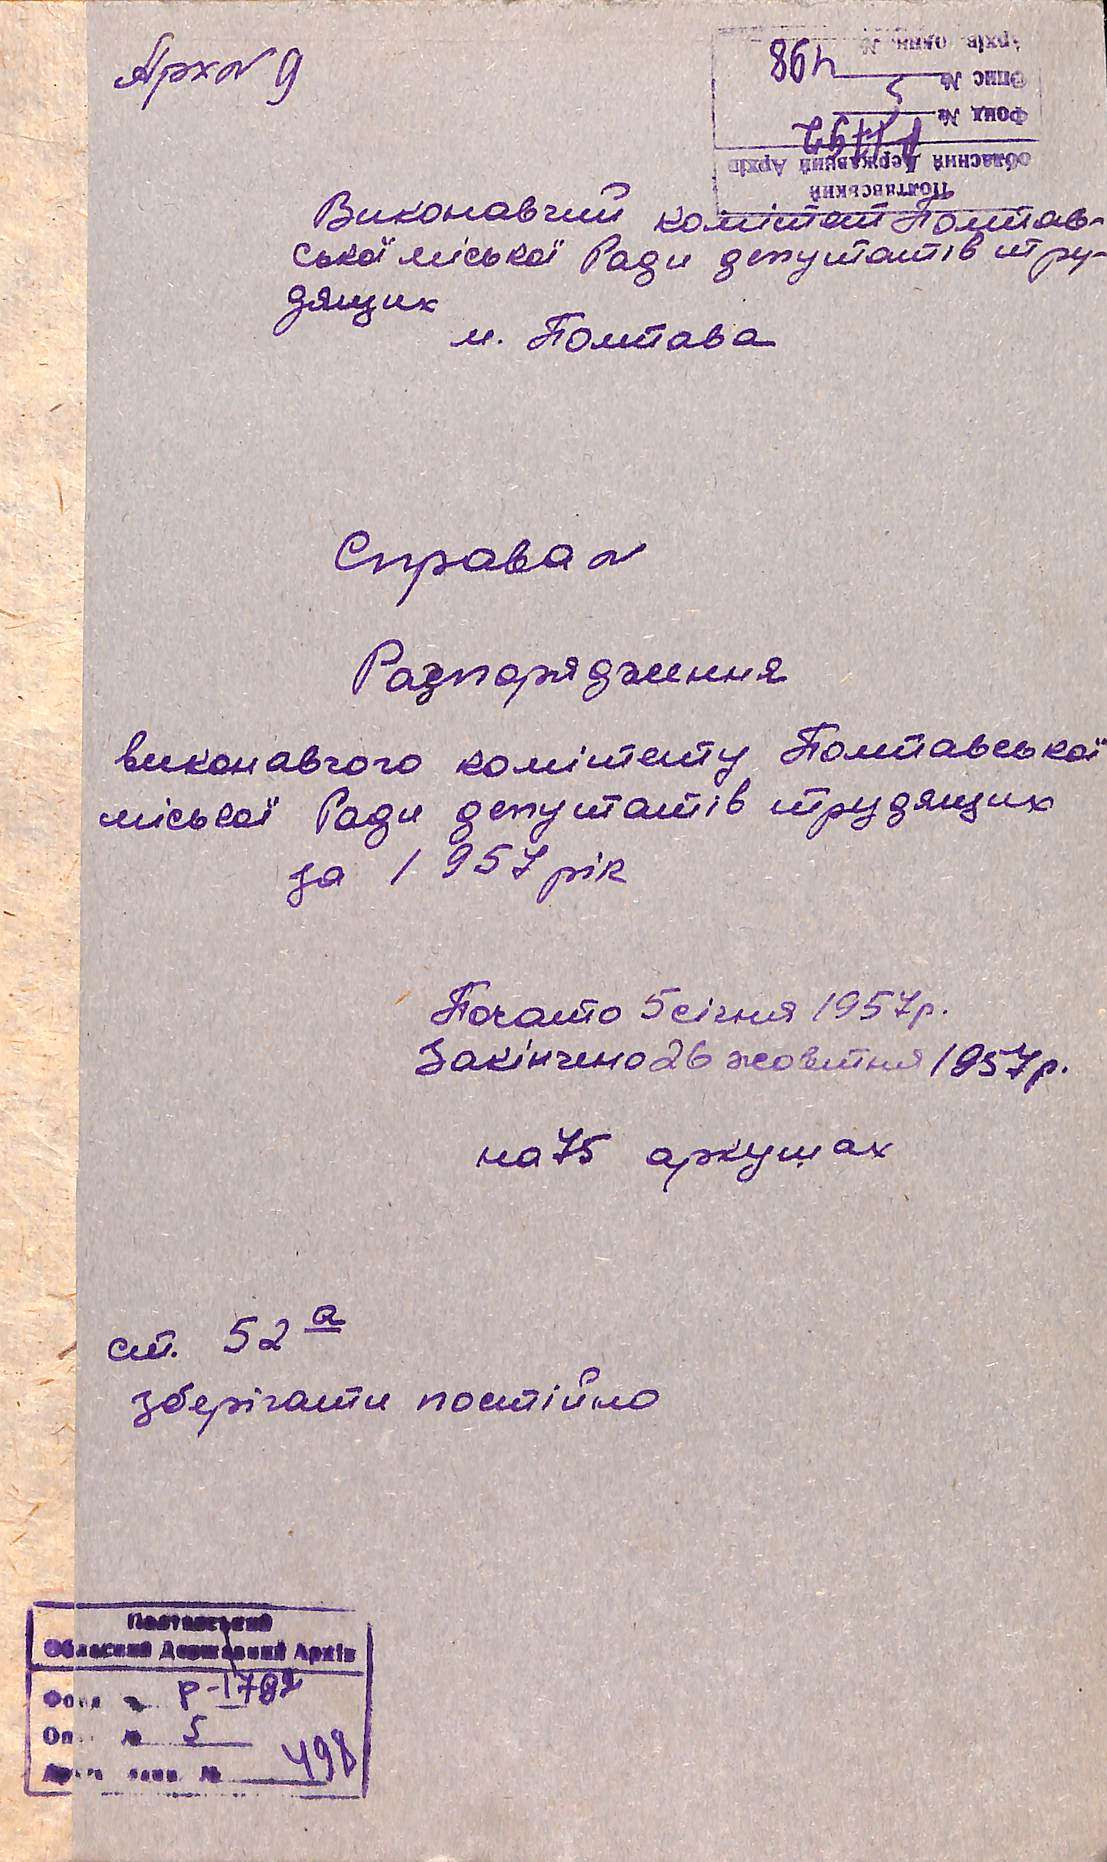 Арх № 9
Полтавський
Обласний Державний Архів
Фонд №
Опис № 5
Архів. один. № 498
Виконавчий комітет Полтав-
ської міської Ради депутатів тру-
дящих
м. Полтава
Справа №
Розпорядження
виконавчого комітету Полтавської
міської Ради депутатів трудящих
за 1957 рік
Почато 5 січня 1957 р.
Закінчено 26 жовтня 1957 р.
на 75 аркушах
ст. 52 а
зберігати постійно
Полтавський
Обласний Державний Архів
Фонд № Р-1792
Опис № 5
Архів. один. № 498